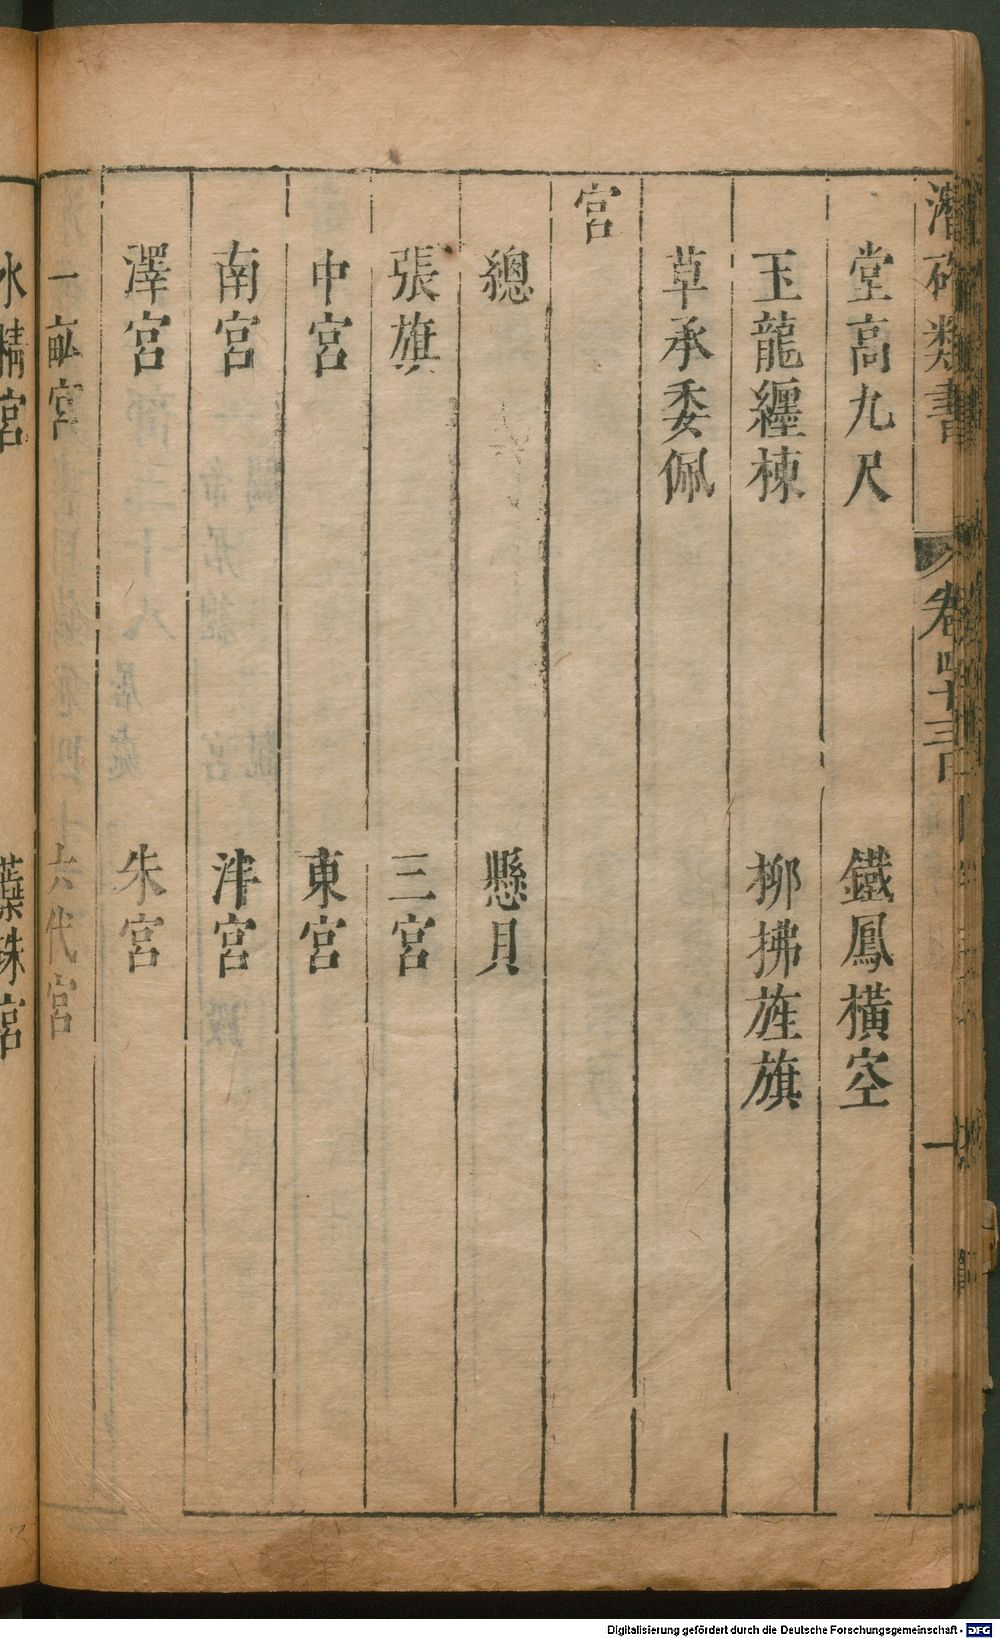 潛確類書 卷四十三
一
堂高九尺 鐵鳳橫空
玉龍纏棟 柳拂旌旗
草承委佩
宮
總 懸貝
張旗 三宮
中宮 東宮
南宮 泮宮
澤宮 朱宮
一畝宮 六代宮
水精宮 蘂珠宮
Digitalisierung gefördert durch die Deutsche Forschungsgemeinschaft - DFG